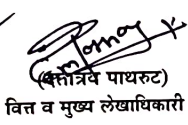 (दत्तात्रय पाथरुट)
वित्त व मुख्य लेखाधिकारी